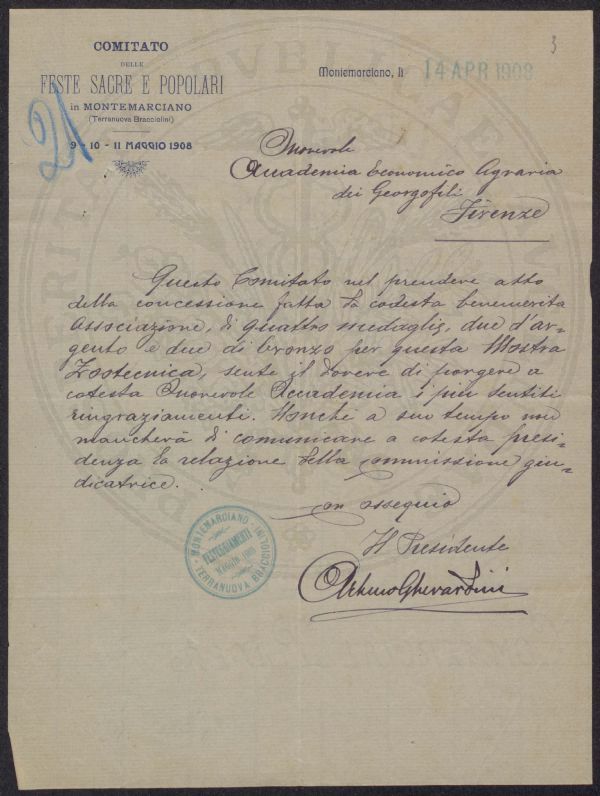 3
COMITATO
DELLE
FESTE SACRE E POPOLARI
in MONTEMARCIANO
(Terranuova Bracciolini)
9 - 10 - 11 MAGGIO 1908
21
Montemarciano, li 14 APR 1908
Onorevole
Accademia Economico Agraria
dei Georgofili
Firenze
Questo Comitato nel prendere atto
della concessione fatta da codesta benemerita
Associazione, di quattro medaglie, due d'ar-
gento e due di bronzo per questa Mostra
Zootecnica, sente il dovere di porgere a
cotesta Onorevole Accademia i più sentiti
ringraziamenti. Nonché a suo tempo non
mancherà di comunicare a cotesta presi-
denza la relazione della commissione giu-
dicatrice.
con ossequio
Il Presidente
Arturo Gherardini
MONTEMARCIANO
FESTEGGIAMENTI
MAGGIO 1908
TERRANUOVA BRACCIOLINI